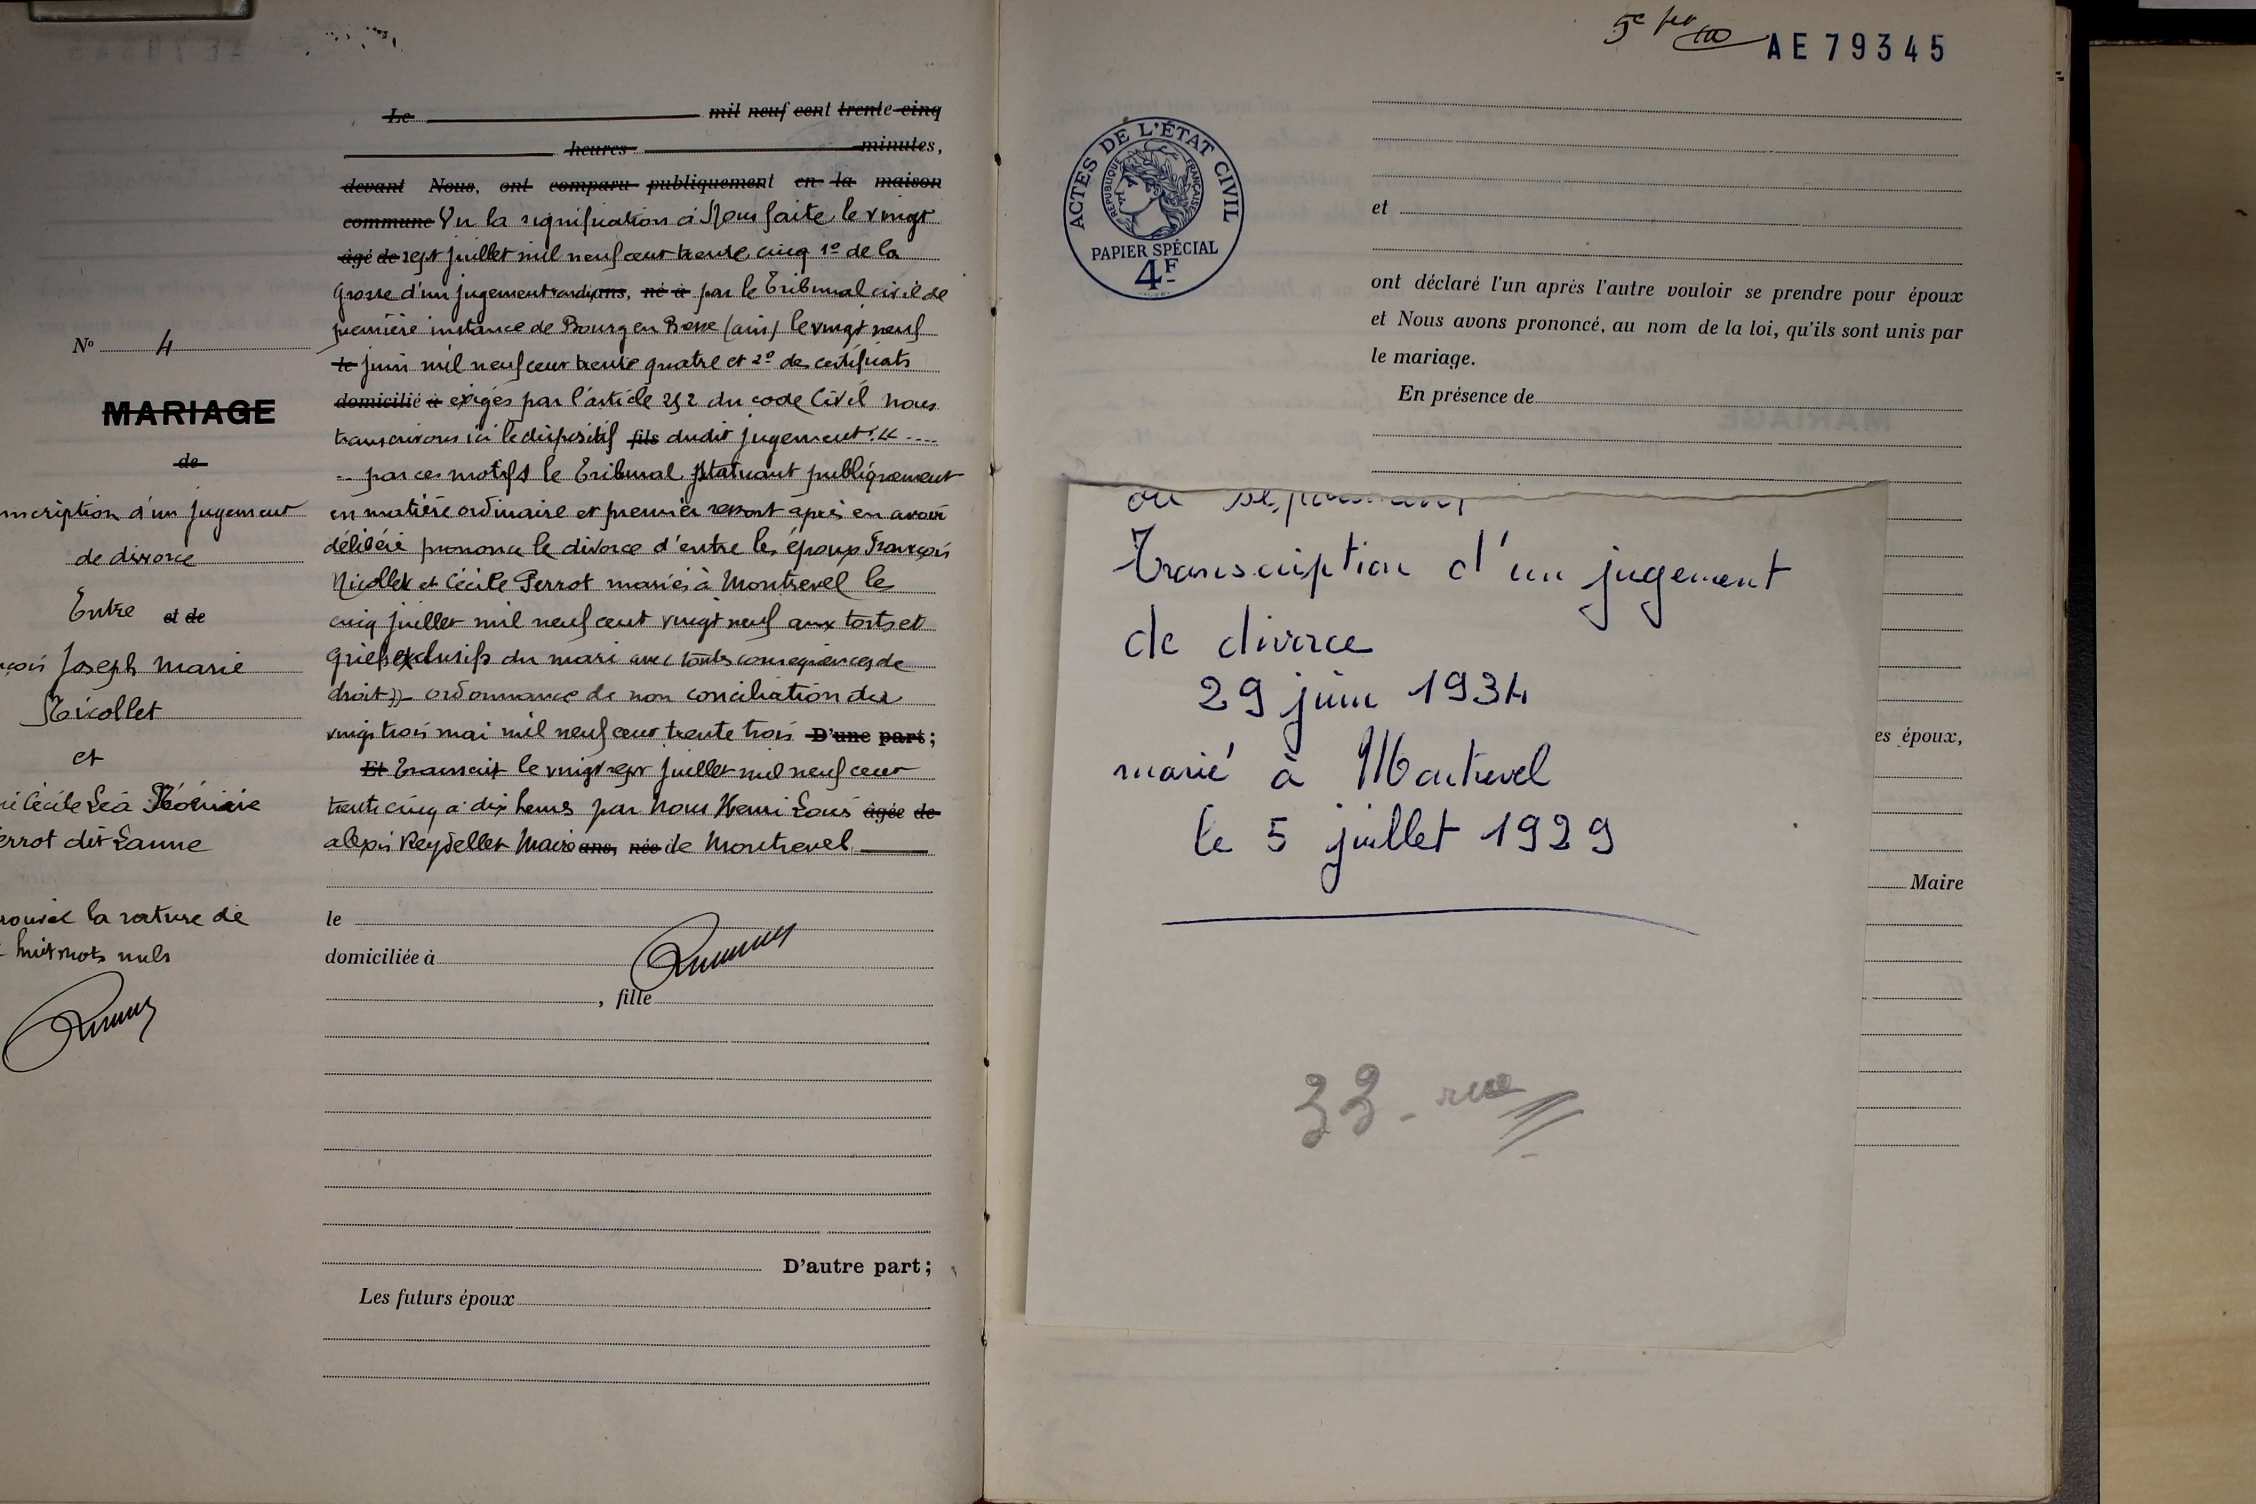 N° 4
MARIAGE
de
nscription d'un jugement
de divorce
Entre et de
çois Joseph Marie
Nicollet
et
Cécile Léa
errot dit Lanne
rouvé la rature de
huit mots nuls
Le mil neuf cent trente-cinq
heures minutes,
devant Nous, ont comparu publiquement en la maison
commune Vu la signification à Nous faite le vingt
âgé de sept juillet mil neuf cent trente cinq 1° de la
grosse d'un jugement rendu ans, né à par le Tribunal civil de
première instance de Bourg en Bresse (ain) le vingt neuf
le juin mil neuf cent trente quatre et 2° des certificats
domicilié à exigés par l'article 252 du code Civil nous
transcrivons ici le dispositif fils dudit jugement: «
par ces motifs le Tribunal statuant publiquement
en matière ordinaire et premier ressort après en avoir
délibéré prononce le divorce d'entre les époux François
Nicollet et Cécile Perrot mariés à Montrevel le
cinq juillet mil neuf cent vingt neuf aux torts et
griefs exclusifs du mari avec toutes conséquences de
droit» ordonnance de non conciliation du
vingt trois mai mil neuf cent trente trois D'une part;
Et Transcrit le vingt sept juillet mil neuf cent
trente cinq à dix heures par Nous Henri Louis âgée de
alexis Reydellet Maire ans, née de Montrevel
le
domiciliée à
, fille
D'autre part;
Les futurs époux
AE79345
ACTES DE L'ÉTAT CIVIL
RÉPUBLIQUE FRANÇAISE
PAPIER SPÉCIAL
4F
et
ont déclaré l'un après l'autre vouloir se prendre pour époux
et Nous avons prononcé, au nom de la loi, qu'ils sont unis par
le mariage.
En présence de
Transcription d'un jugement
de divorce
29 juin 1934
marié à Montrevel
le 5 juillet 1929
es époux,
Maire
33